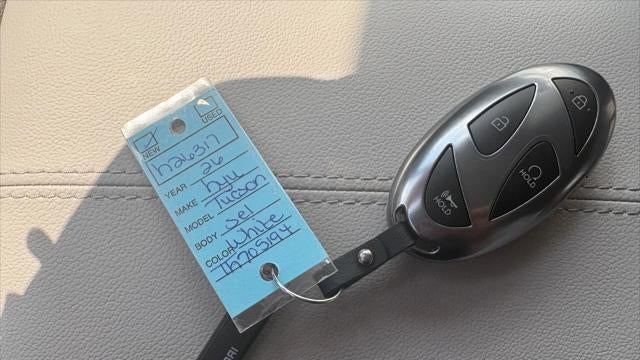 NEW
USED
h26317
YEAR 26
MAKE hyu
MODEL Tucson
BODY sel
COLOR White
Th705194
HOLD
HOLD